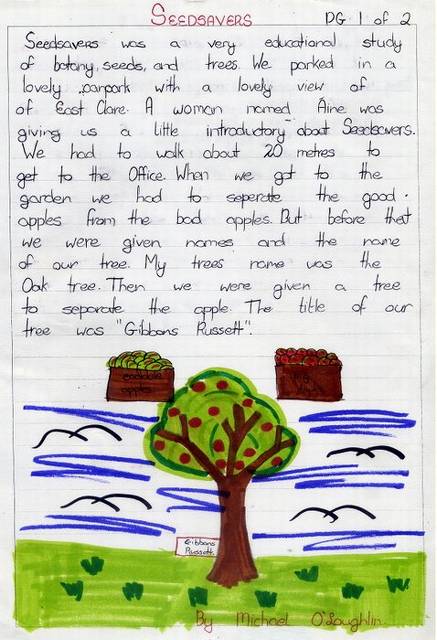 SEEDSAVERS PG 1 of 2
Seedsavers was a very educational study
of botany, seeds, and trees. We parked in a
lovely carpark with a lovely view of
of East Clare. A woman named Aine was
giving us a little introductory about Seedsavers.
We had to walk about 20 metres to
get to the Office. When we got to the
garden we had to seperate the good
apples from the bad apples. But before that
we were given names and the name
of our tree. My trees name was the
Oak tree. Then we were given a tree
to separate the apple. The title of our
tree was "Gibbons Russett".
apples
Gibbons
Russett
By Michael O'Loughlin